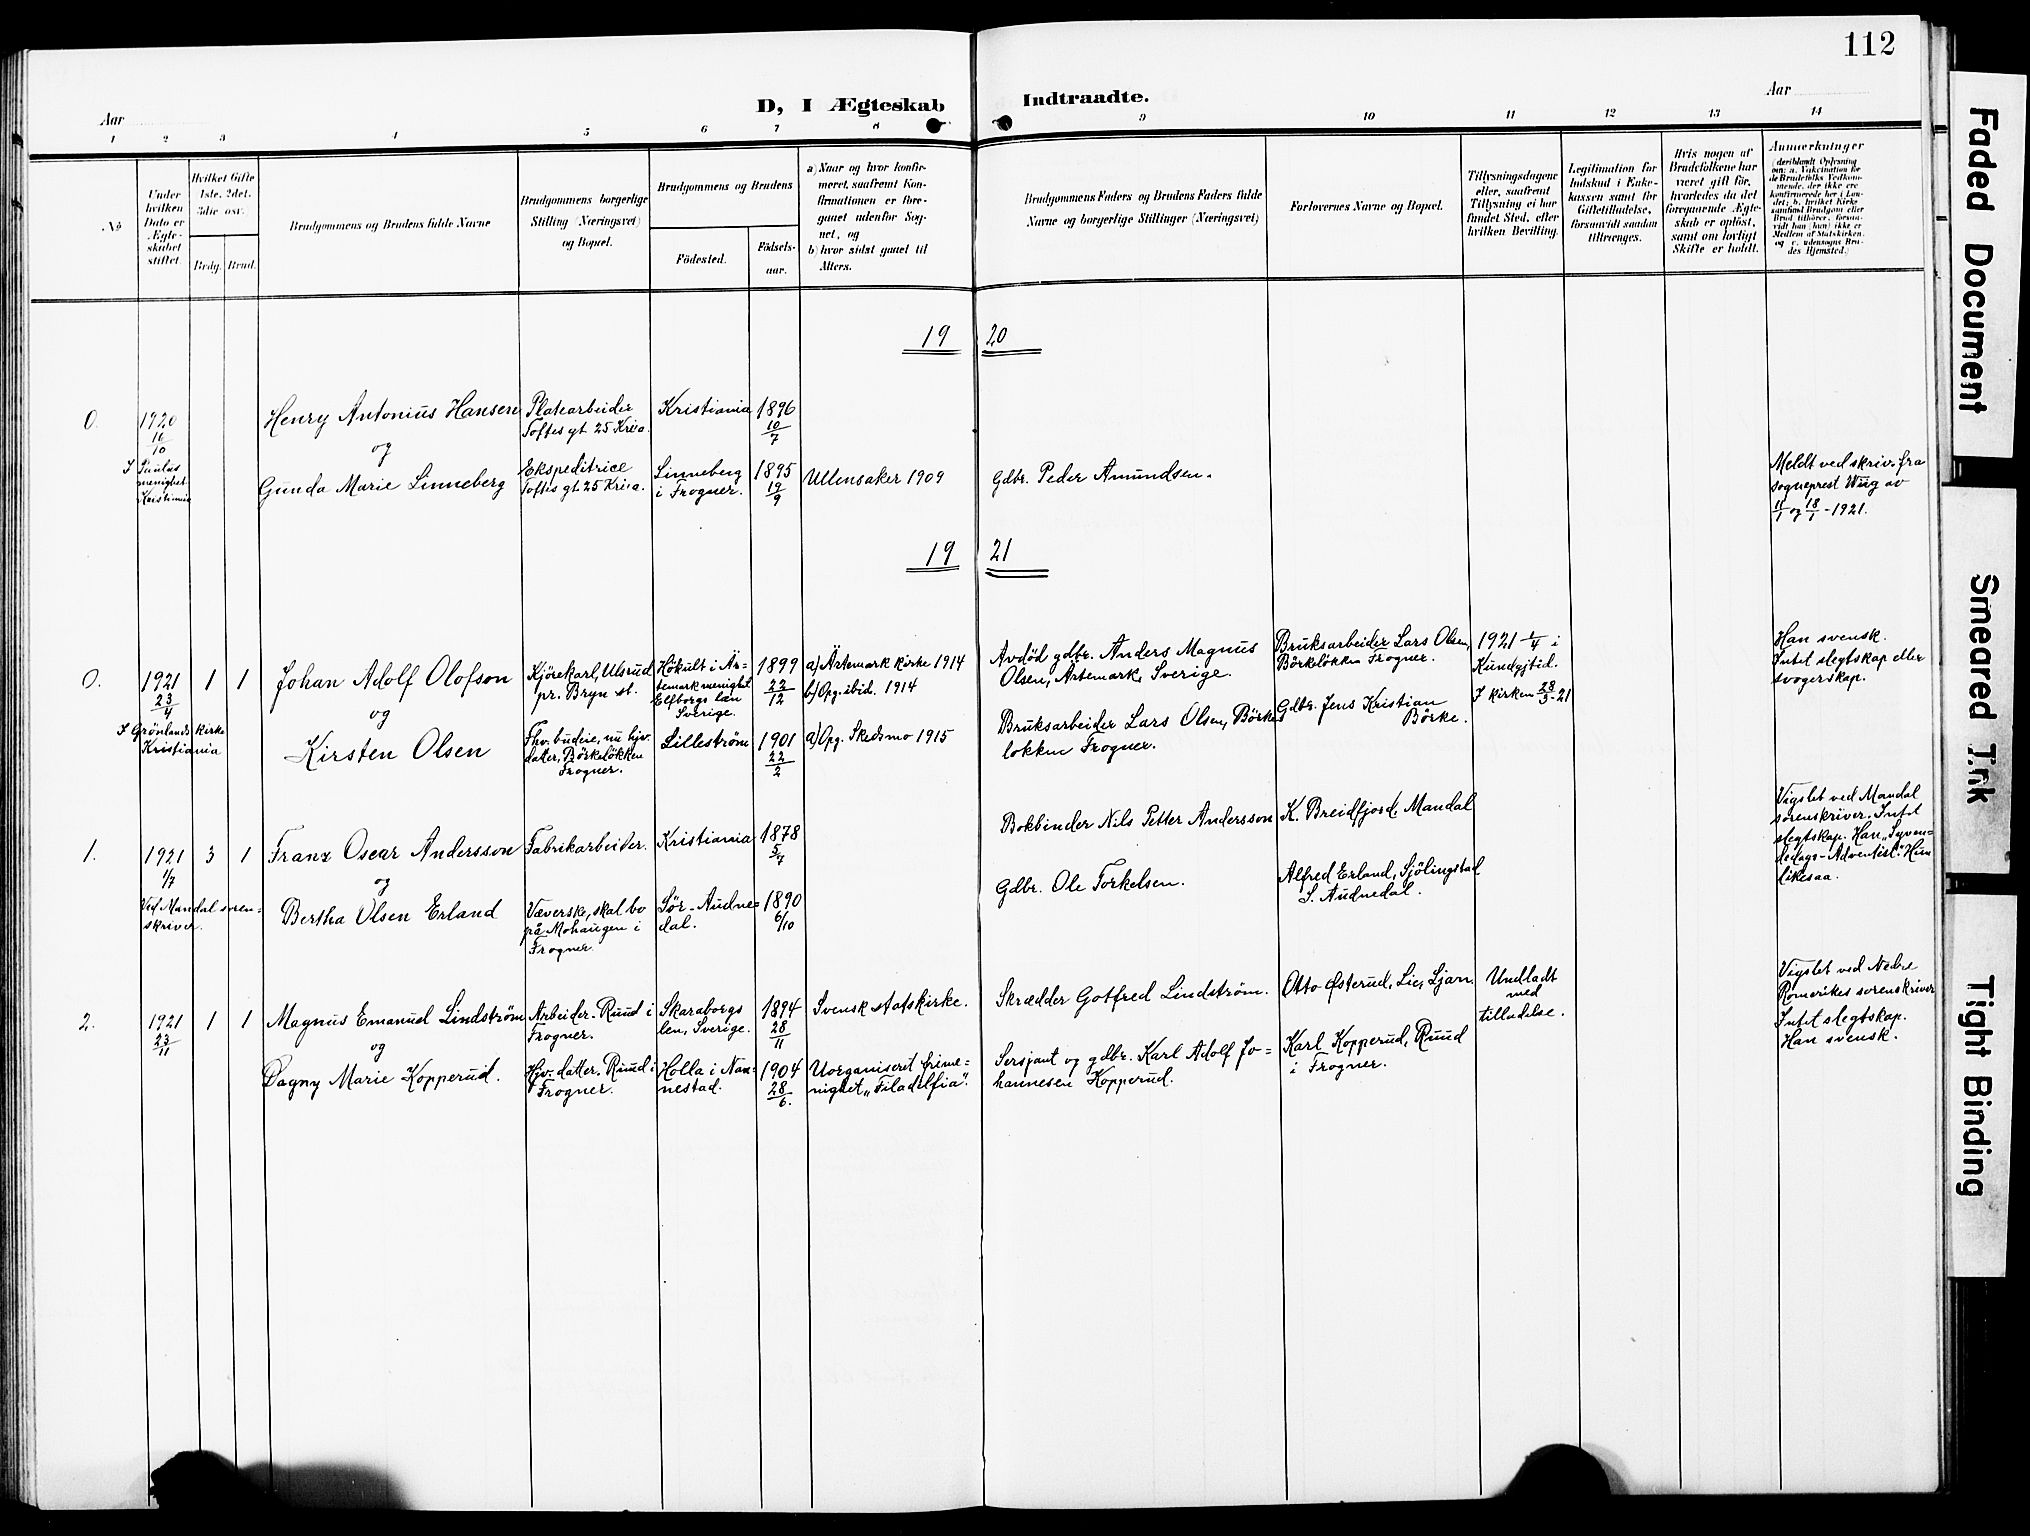 112
D, I Ægteskab Indtraadte.
Aar
Aar
1 2 3 4 5 6 7 8 9 10 11 12 13 14
No
Under hvilken Dato er Ægteskabet stiftet.
Hvilket Gifte 1ste, 2det, 3die osv.
Brdg. Brud.
Brudgommens og Brudens fulde Navne
Brudgommens borgerlige Stilling (Næringsvei) og Bopæl.
Brudgommens og Brudens
Fødested.
Fødselsaar.
a) Naar og hvor konfirmeret, saafremt Konfirmationen er foregaaet udenfor Sognet, og
b) hvor sidst gaaet til Alters.
Brudgommens Faders og Brudens Faders fulde Navne og borgerlige Stillinger (Næringsvei)
Forlovernes Navne og Bopæl.
Tillysningsdagene eller, saafremt Tillysning ei har fundet Sted, efter hvilken Bevilling.
Legitimation for Indskud i Enkekassen samt for Giftetilladelse, forsaavidt saadan tiltrænges.
Hvis nogen af Brudefolkene har været gift før, hvorledes da det foregaaende Ægteskab er opløst, samt om lovligt Skifte er holdt.
Anmærkninger
(deriblandt Oplysning om: a. Vakcination for de Brudefolks Vedkommende, der ikke ere konfirmerede her i Landet; b. hvilket Kirkesamfund Brudgom eller Brud tilhører, forsaavidt han (hun) ikke er Medlem af Statskirken, og c. udensogns Brudes Hjemsted.)
19 20
0.
1920
16/10
I Paulus menighet Kristiania
Henry Antonius Hansen
og
Gunda Marie Linneberg
Platearbeider
Toftes gt 25 Kr.ia.
Ekspeditrice
Toftes gt. 25 Kr.ia.
Kristiania
Linneberg
i Frogner.
1896
10/7
1895
19/9
Ullensaker 1909
Gdbr. Peder Amundsen.
Meldt ved skriv. fra
sogneprest Wiig av
11/1 og 18/1 - 1921.
19 21
0.
1921
23/4
I Grønlands kirke
Kristiania
1 1
Johan Adolf Olofson
og
Kirsten Olsen
Kjørekarl, Ulsrud
pr. Bryn st.
Fhv. budeie, nu hjv.
datter, Børkeløkken
Frogner.
Høkult i Ärtemark menighet
Elfborgs län
Sverige.
Lillestrøm
1899
22/12
1901
22/2
a) Ärtemark kirke 1914
b) Opg. ibid. 1914
a) Opg. Skedsmo 1915
Avdød gdbr. Anders Magnus
Olsen, Ärtemark, Sverige.
Bruksarbeider Lars Olsen, Børkeløkken Frogner.
Bruksarbeider Lars Olsen,
Børkløkken Frogner.
Gdbr. Jens Kristian
Børke.
1921 1/4 i
Kundgj.tid.
I kirken 28/3-21
Han svensk.
Intet slegtskap eller
svogerskap.
1.
1921
1/7
Ved Mandal sorenskriver.
3 1
Franz Oscar Andersson
og
Bertha Olsen Erland
Fabrikarbeider.
Væverske, skal bo
på Mohaugen i
Frogner.
Kristiania
Sør-Audnedal.
1878
5/4
1890
6/10
Bokbinder Nils Petter Andersson
Gdbr. Ole Torkelsen.
K. Breidfjord, Mandal
Alfred Erland, Sjølingstad
S. Audnedal.
Vigslet ved Mandal
sorenskriver. Intet
slegtskap. Han „Syvendedags-Adventist." Hun
likesaa.
2.
1921
23/11
1 1
Magnus Emanuel Lindstrøm
og
Dagny Marie Kopperud.
Arbeider. Ruud i
Frogner.
Hjv. datter. Ruud i
Frogner.
Skaraborgs
len, Sverige.
Holla i Nannestad.
1894
28/11
1904
28/6.
Svensk statskirke.
Uorganiseret frimenighet „Filadelfia".
Skrædder Gotfred Lindstrøm.
Sersjant og gdbr. Karl Adolf Johannesen Kopperud.
Otto Østerud, Lie, Ljan.
Karl Kopperud, Ruud
i Frogner.
Undladt
med
tilladelse.
Vigslet ved Nedre
Romerikes sorenskriver
Intet slegtskap.
Han svensk.
Faded Document
Smeared Ink
Tight Binding